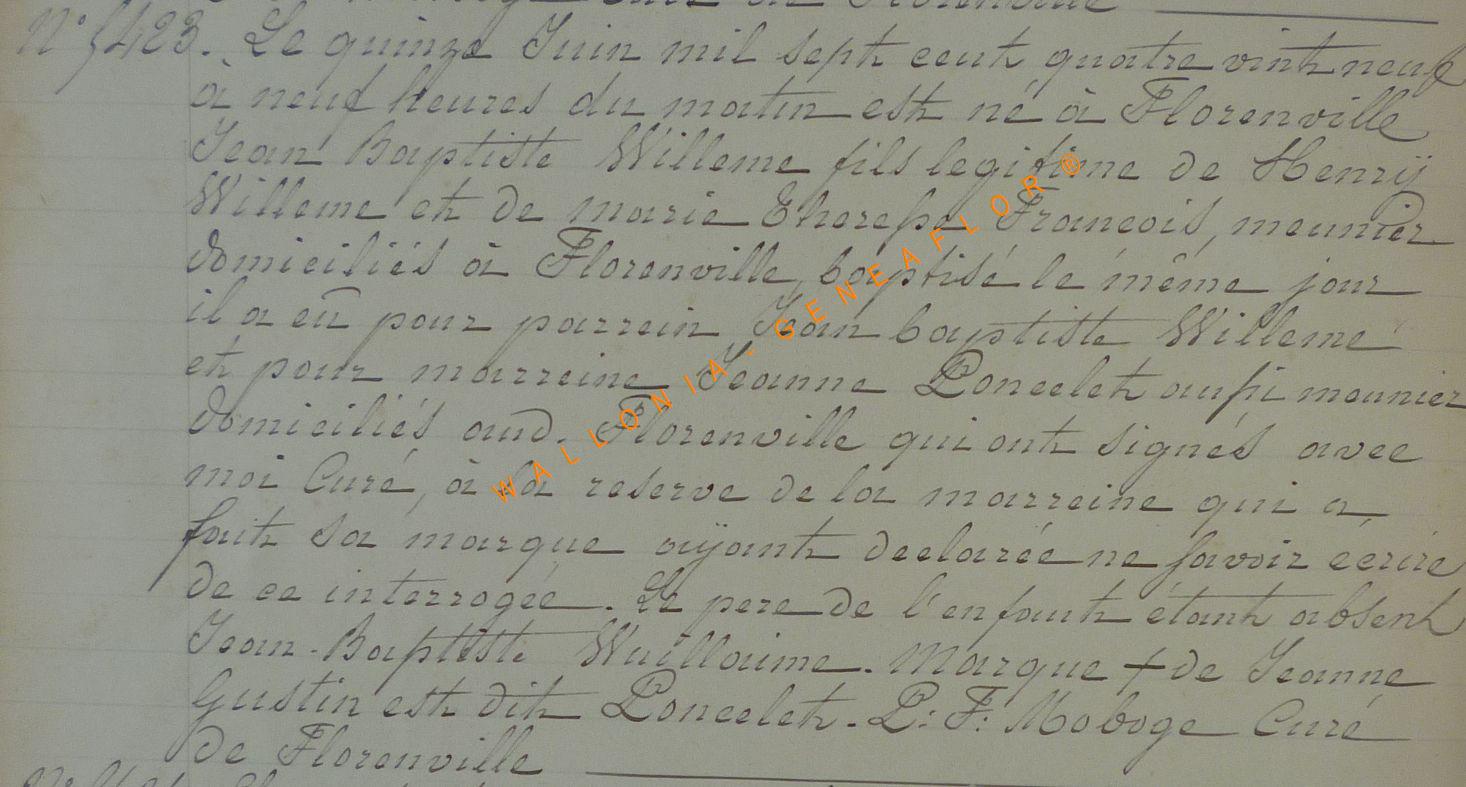 de Florenville
N° 423. Le quinze Juin mil sept cent quatre vint neuf
à neuf heures du matin est né à Florenville
Jean Baptiste Willeme fils legitime de Henrÿ
Willeme et de marie Theresse Francois, meunier
domiciliés à Florenville, baptisé le même jour
il a eu pour parrein Jean baptiste Willeme
et pour marreine Jeanne Poncelet aussi meunier
domiciliés aud. Florenville qui ont signés avec
moi Curé, à la reserve de la marreine qui a
fait sa marque aÿant declarée ne savoir ecrire
de ce interrogée. Le pere de l'enfant étant absent
Jean-Baptiste Wuillaime. Marque + de Jeanne
Gustin est dit Poncelet. P: F: Moboge Curé
de Florenville
WALLONIA-GENEAFLOR®